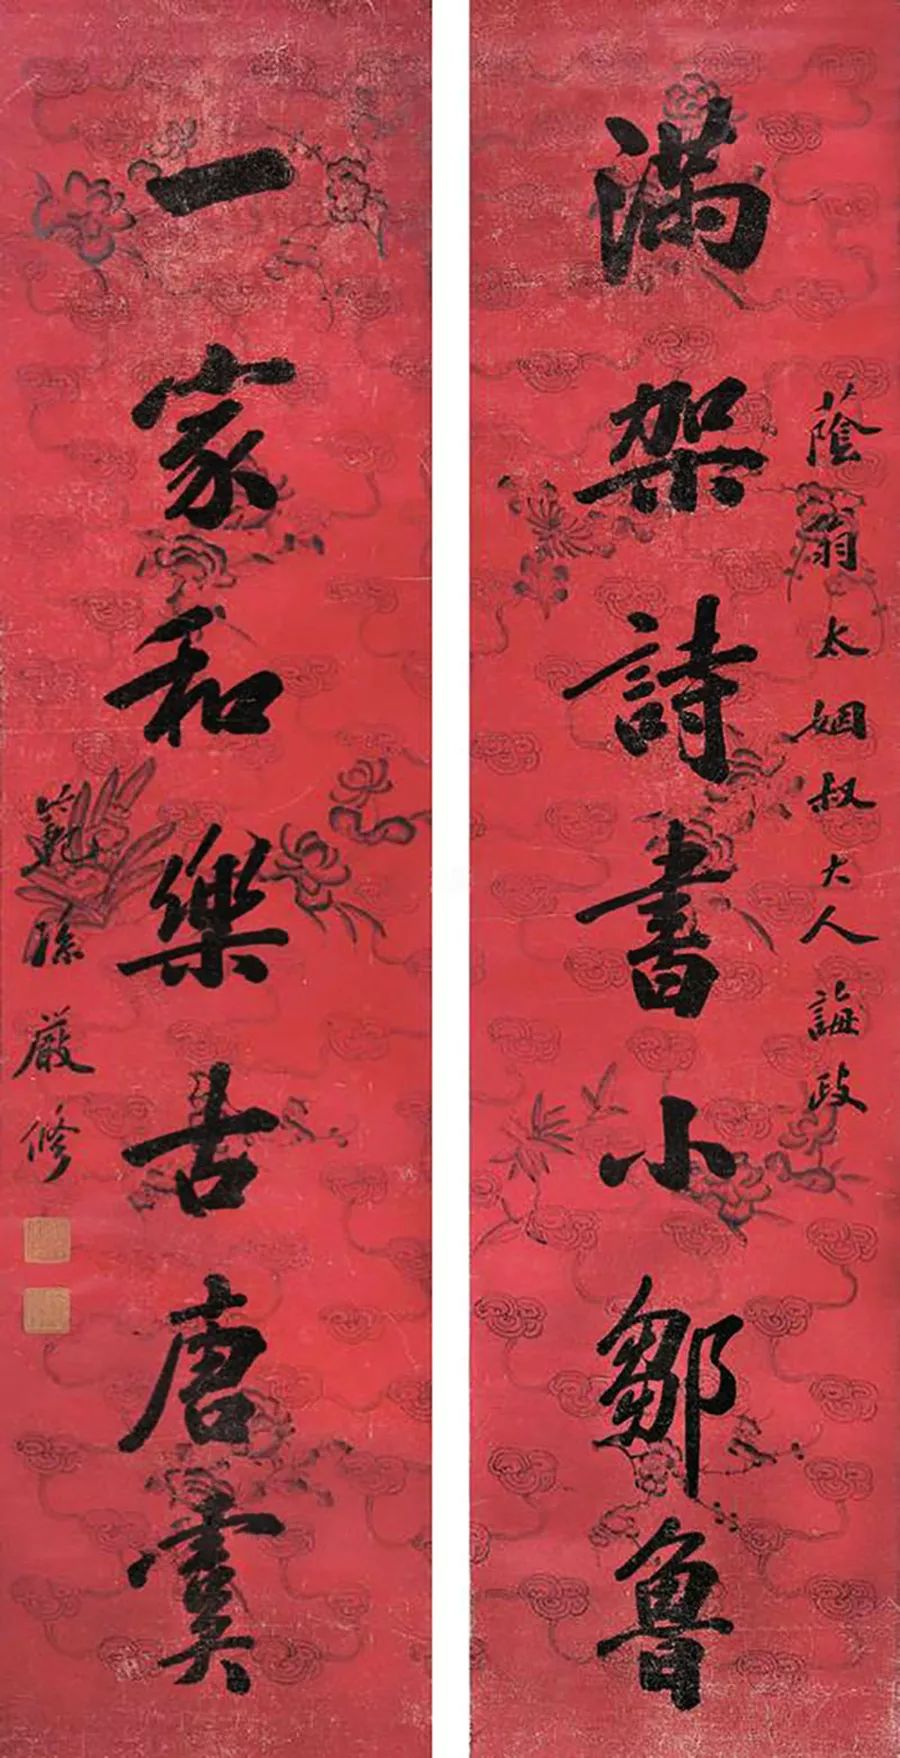 蔭翁太姻叔大人誨政
满架詩書小鄒魯
一家和樂古唐虞
範孫嚴修